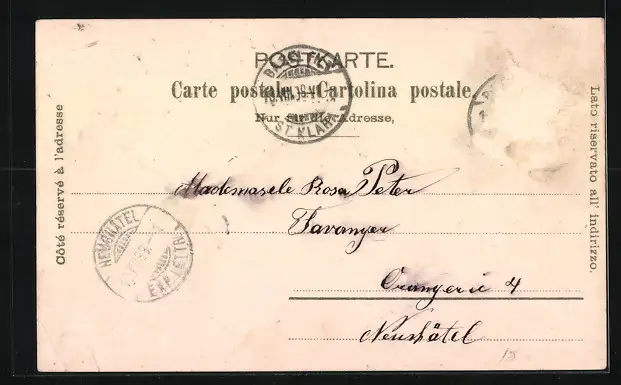 POSTKARTE.
Carte postale. Cartolina postale.
Nur für die Adresse,
Côté réservé à l'adresse
Lato riservato all' indirizzo.
BASEL
ST. KLARA
Mademasele Rosa Peter
Savanger
Orangerie 4
Neushâtel
NEUCHÂTEL
EXP. LETTR.
15